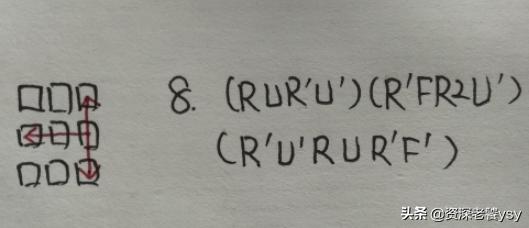 8. (RUR'U')(R'FR2U')
(R'U'RUR'F')
头条 @资深老饕ysy